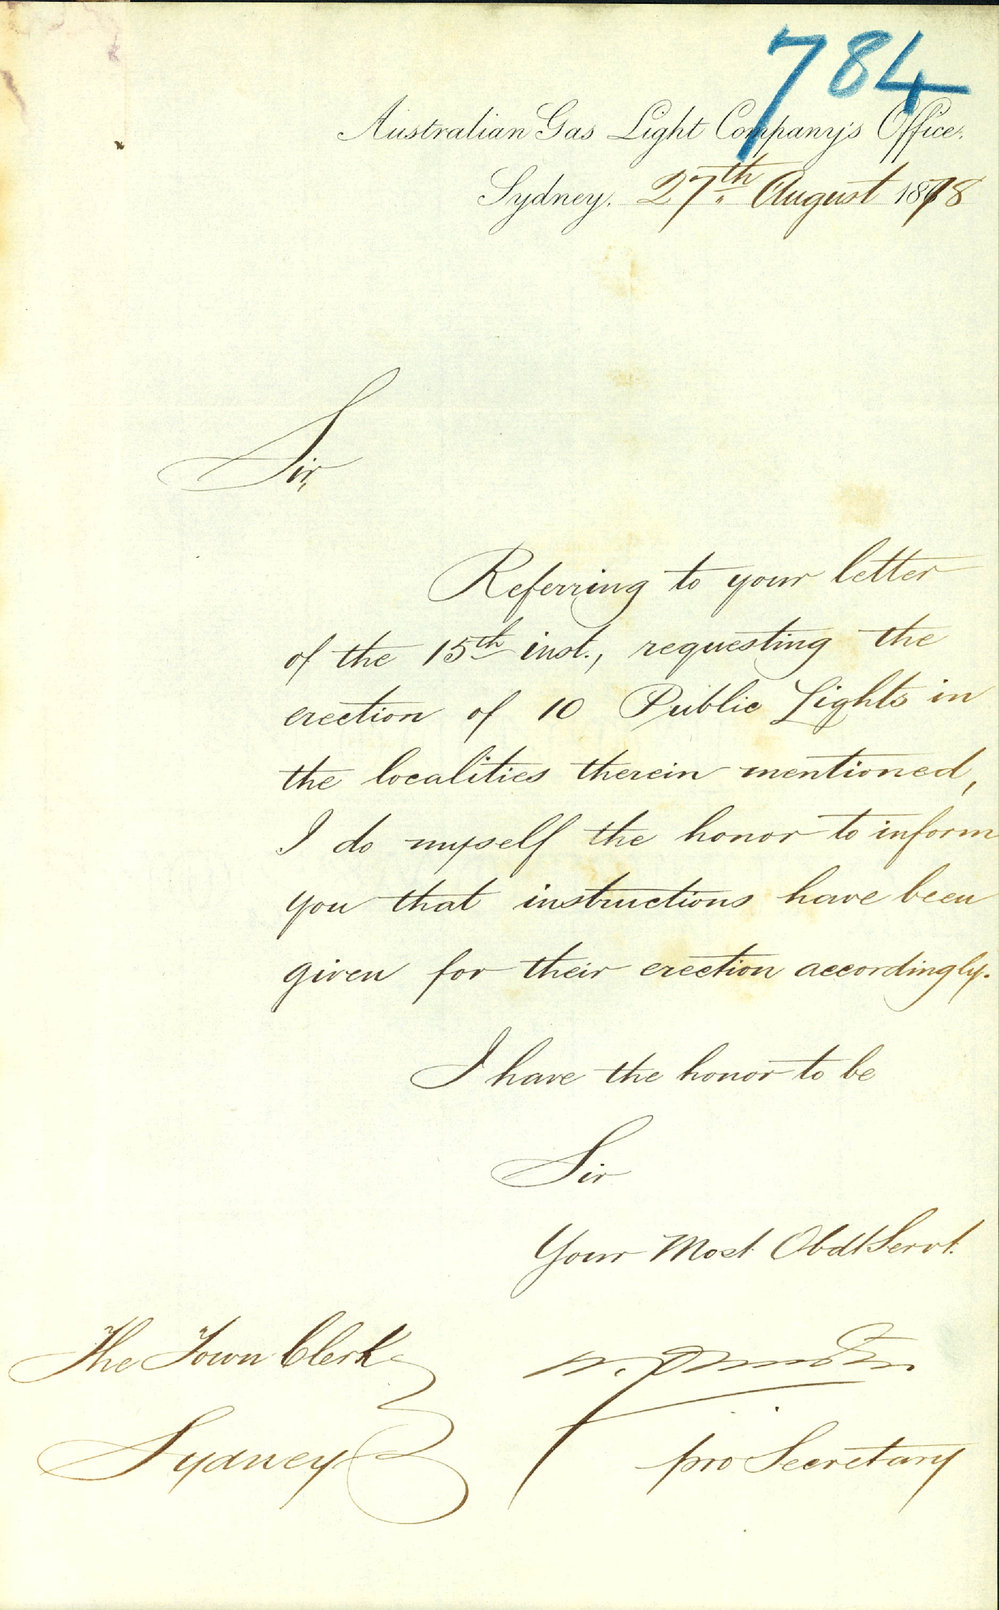 784
Australian Gas Light Company's Office.
Sydney, 27th August 1878
Sir,
Referring to your letter
of the 15th inst., requesting the
erection of 10 Public Lights in
the localities therein mentioned,
I do myself the honor to inform
you that instructions have been
given for their erection accordingly.
I have the honor to be
Sir
Your Most Obdt Servt.
The Town Clerk
Sydney
pro Secretary